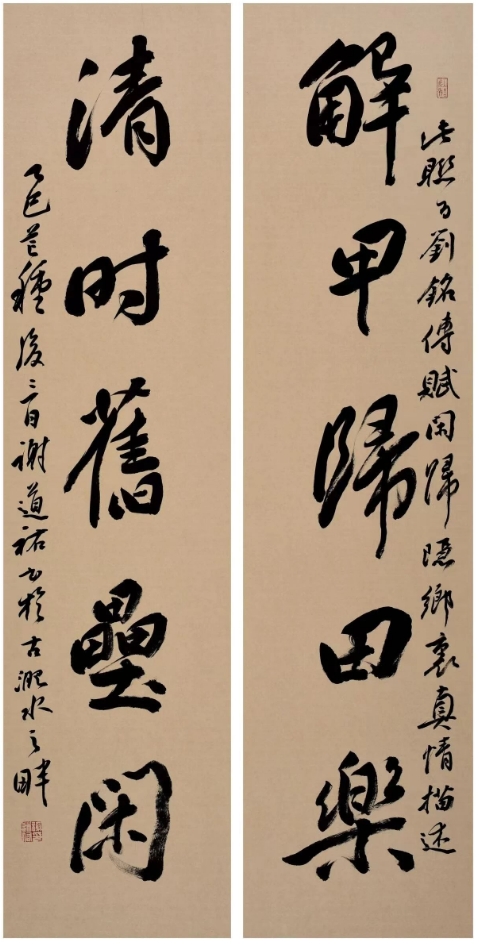 解甲歸田樂
清时舊壘閑
此聯为劉銘傳賦閑歸隱鄉裏真情描述
乙巳芒種後三日謝道祐书於古淝水之畔